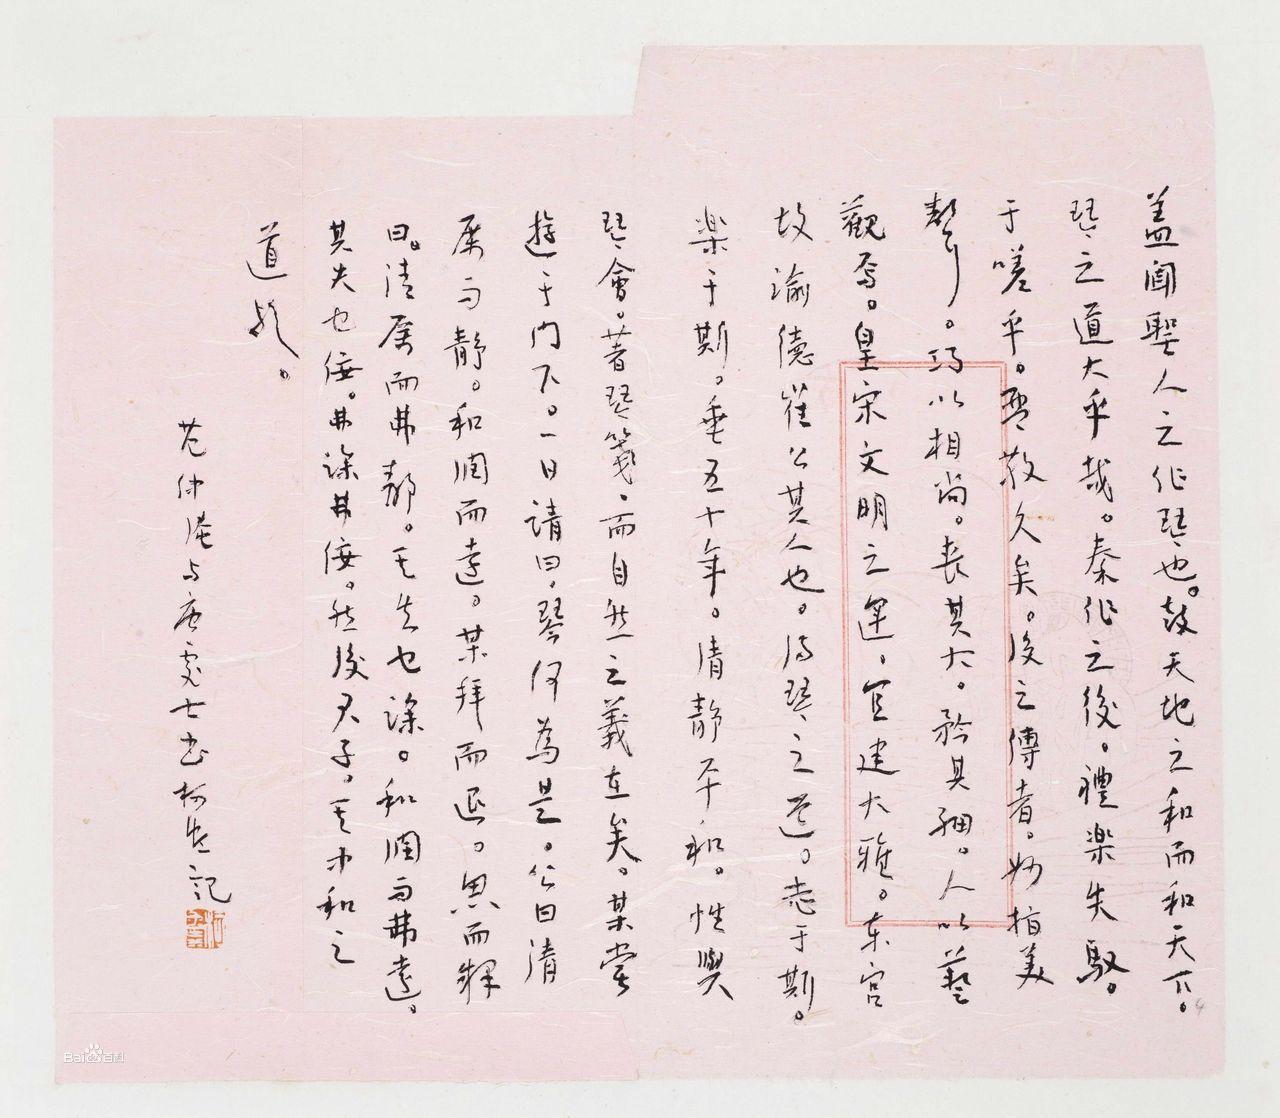 蓋聞聖人之作琴也。鼓天地之和而和天下。
琴之道大乎哉。秦作之後。禮樂失馭。
于嗟乎。琴散久矣。後之傳者。妙指美
聲。巧以相尚。喪其大。矜其細。人以藝
觀焉。皇宋文明之運。宜建大雅。东宮
故諭德崔公其人也。得琴之道。志于斯。
樂于斯。垂五十年。清靜平和。性與
琴會。著琴箋。而自然之義在矣。某嘗
遊于門下。一日請曰。琴何為是。公曰清
厲而靜。和潤而遠。某拜而退。思而釋
曰。清厲而弗靜。其失也躁。和潤而弗遠。
其失也佞。弗躁弗佞。然後君子。其中和之
道歟。
范仲淹与唐處士书 記
Baidu百科